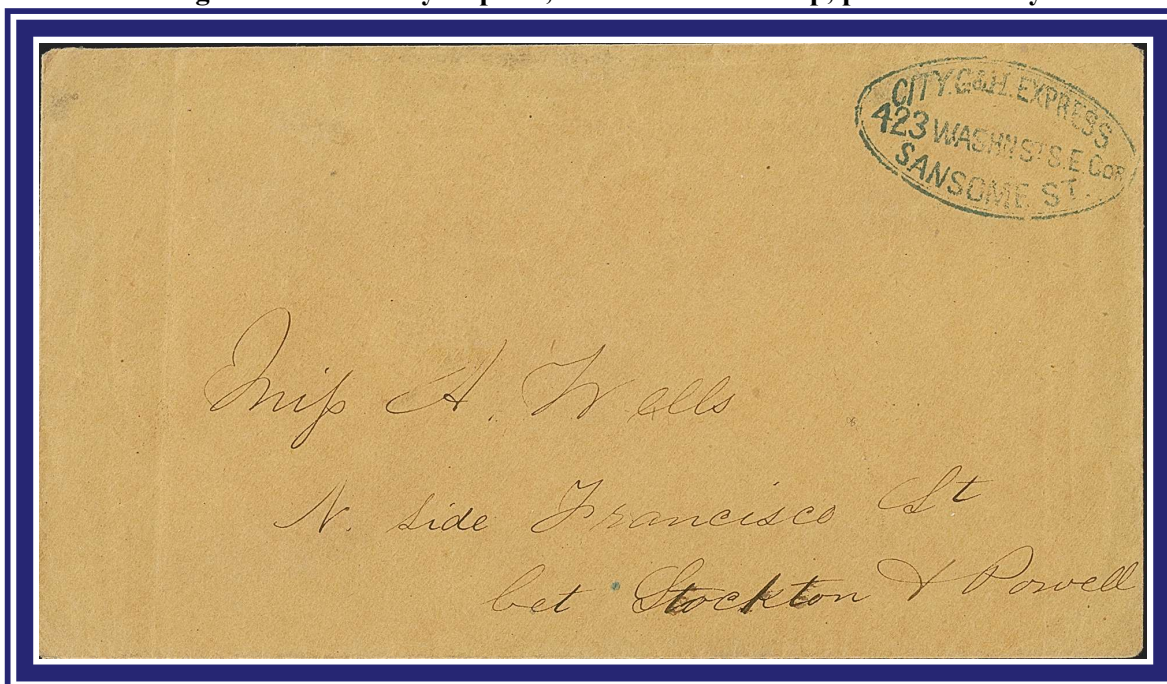 CITY. G&H. EXPRESS
423 WASHN ST S.E. COR
SANSOME ST.
Miss A. Wells
N. side Francisco St
bet Stockton & Powell